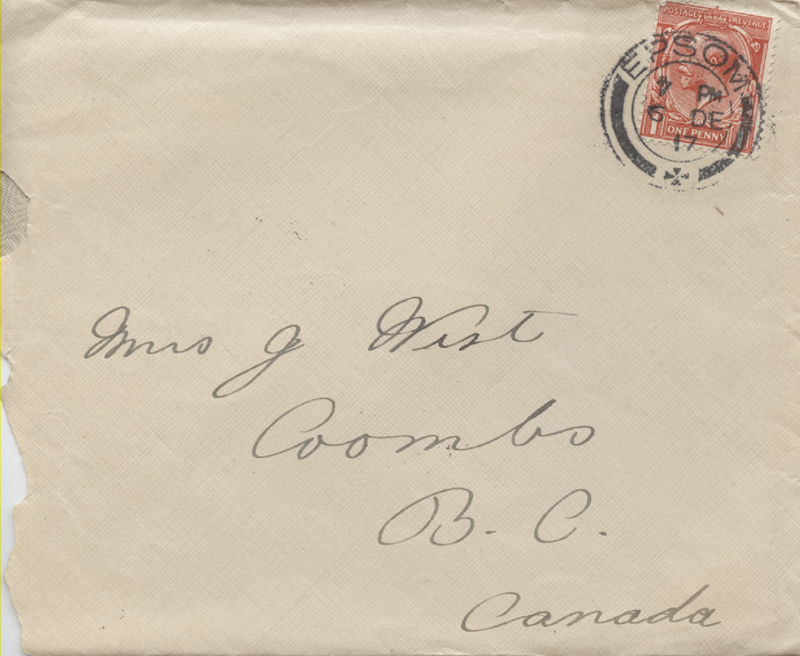 POSTAGE REVENUE
EPSOM
4 PM
6 DE
17
1 ONE PENNY
Mrs J West
Coombs
B. C.
Canada